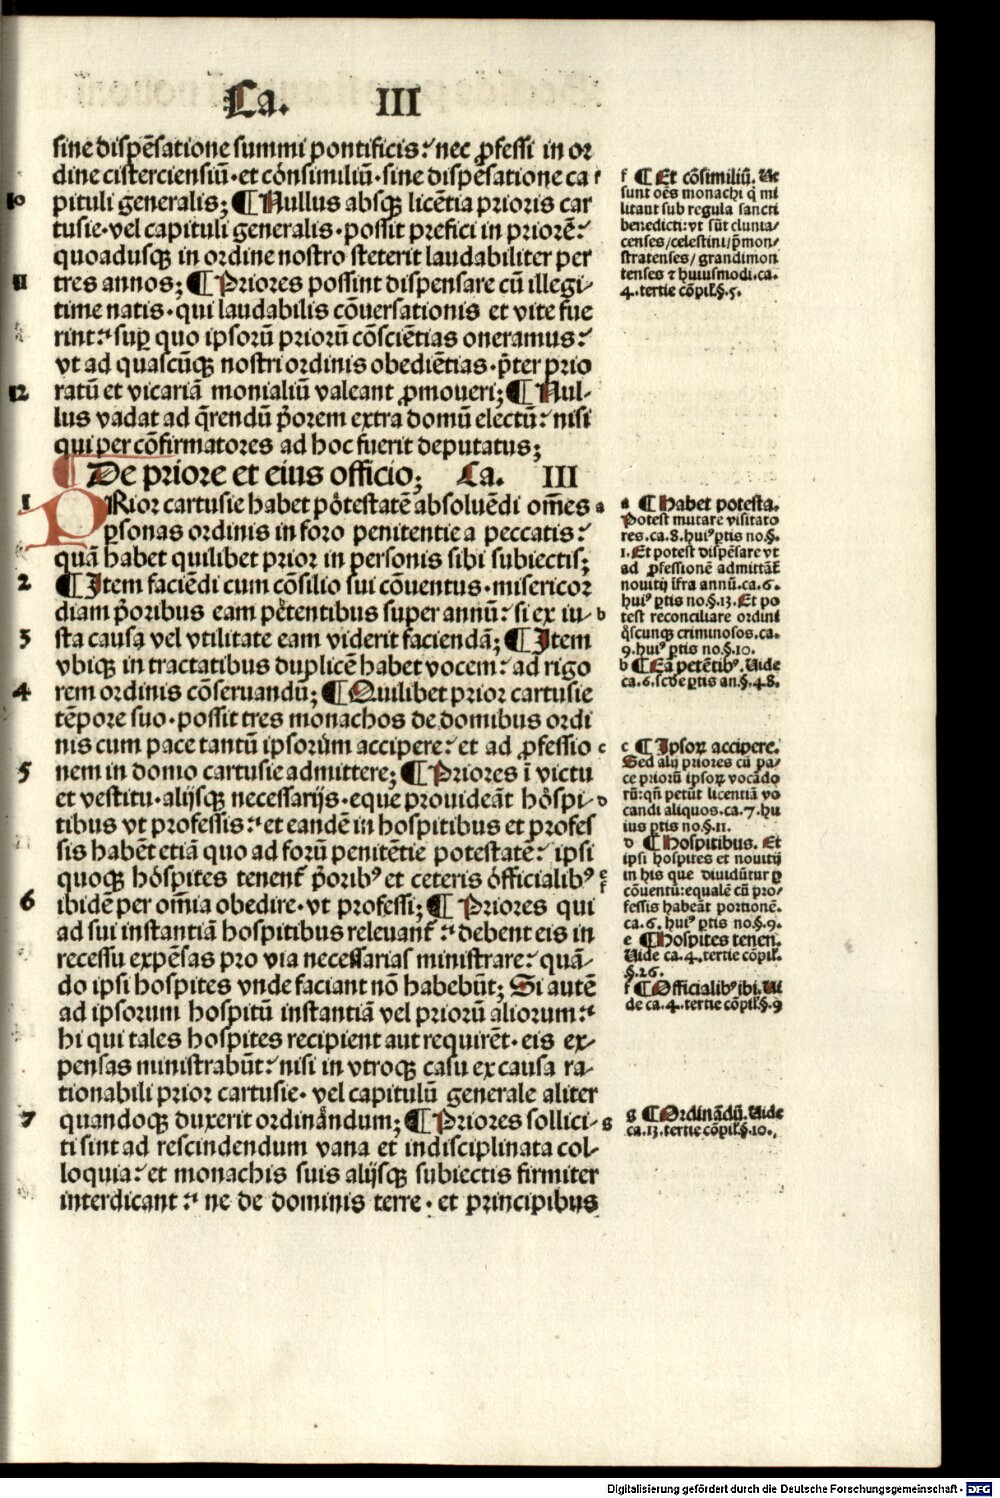 Ca. III
sine dispẽsatione summi pontificis: nec ꝓfessi in or
dine cisterciensiũ·et cõnsimiliũ·sine dispẽsatione ca f
10 pituli generalis; ¶ Nullus absqꝫ licẽtia prioris car
tusie·vel capituli generalis·possit prefici in priorẽ:
quoadusqꝫ in ordine nostro steterit laudabiliter per
11 tres annos; ¶ Priores possint dispensare cũ illegi-
time natis·qui laudabilis cõuersationis et vite fue
rint: suꝑ quo ipsorũ priorũ cõsciẽtias oneramus:
vt ad quascũqꝫ nostri ordinis obediẽtias·p̃ter prio
12 ratũ et vicariã monialiũ valeant ꝓmoueri; ¶ Nul-
lus vadat ad q̃rendũ p̃orem extra domũ electũ: nisi
qui per cõfirmatores ad hoc fuerit deputatus;
¶ De priore et eius officio; Ca. III
1 PRior cartusie habet potestatẽ absoluẽdi om̃es a
ꝑsonas ordinis in foro penitentie a peccatis:
quã habet quilibet prior in personis sibi subiectis;
2 ¶ Item faciẽdi cum cõsilio sui cõuentus·misericor
diam p̃oribus eam petentibus super annũ: si ex iu- b
3 sta causa vel vtilitate eam viderit faciendã; ¶ Item
vbiqꝫ in tractatibus duplicẽ habet vocem: ad rigo
4 rem ordinis cõseruandũ; ¶ Quilibet prior cartusie
tẽpore suo·possit tres monachos de domibus ordi
nis cum pace tantũ ipsorum accipere: et ad ꝓfessio c
5 nem in domo cartusie admittere; ¶ Priores ĩ victu
et vestitu·alijsqꝫ necessarijs·eque prouideãt hospi- d
tibus vt professis: et eandẽ in hospitibus et profes
sis habẽt etiã quo ad forũ penitẽtie potestatẽ: ipsi
quoqꝫ hospites tenent̃ p̃oribꝰ et ceteris officialibꝰ e f
6 ibidẽ per om̃ia obedire·vt professi; ¶ Priores qui
ad sui instantiã hospitibus releuant̃: debent eis in
recessu expẽsas pro via necessarias ministrare: quã-
do ipsi hospites vnde faciant nõ habebũt; Si autẽ
ad ipsorum hospitũ instantiã vel priorũ aliorum:
hi qui tales hospites recipient aut requirẽt·eis ex-
pensas ministrabũt: nisi in vtroqꝫ casu ex causa ra-
tionabili prior cartusie·vel capitulũ generale aliter
7 quandoqꝫ duxerit ordinandum; ¶ Priores sollici- g
ti sint ad rescindendum vana et indisciplinata col-
loquia: et monachis suis alijsqꝫ subiectis firmiter
interdicant: ne de dominis terre·et principibus
f ¶ Et cõsimiliũ. Ut
sunt oẽs monachi q̃ mi
litant sub regula sancti
benedicti: vt sũt clunia-
censes/celestini/p̃mon-
stratenses/grandimon
tenses ⁊ huiusmodi.ca.
4.tertie cõpil̃.§.5.
a ¶ Habet potesta.
Potest mutare visitato
res.ca.8.huiꝰ ꝑtis no.§.
1.Et potest dispẽsare vt
ad ꝓfessionẽ admittãt̃
nouitij ĩfra annũ.ca.6.
huiꝰ ꝑtis no.§.13.Et po
test reconciliare ordini
q̃scunqꝫ criminosos.ca.
9.huiꝰ ꝑtis no.§.10.
b ¶ Eã petẽtibꝰ. Uide
ca.6.scđe ꝑtis an.§.48.
c ¶ Ipsoꝝ accipere.
Sed alij priores cũ pa-
ce priorũ ipsoꝝ vocãdo
rũ: qñ petũt licentiã vo
candi aliquos.ca.7.hu
ius ꝑtis no.§.11.
d ¶ Hospitibus. Et
ipsi hospites et nouitij
in his que diuidũtur ꝑ
cõuentũ: equalẽ cũ pro-
fessis habeãt portionẽ.
ca.6.huiꝰ ꝑtis no.§.9.
e ¶ Hospites tenen.
Uide ca.4.tertie cõpil̃.
§.26.
f ¶ Officialibꝰ ibi. Ui
de ca.4.tertie cõpil̃.§.9
g ¶ Ordinãdũ. Uide
ca.13.tertie cõpil̃.§.10.
Digitalisierung gefördert durch die Deutsche Forschungsgemeinschaft - DFG